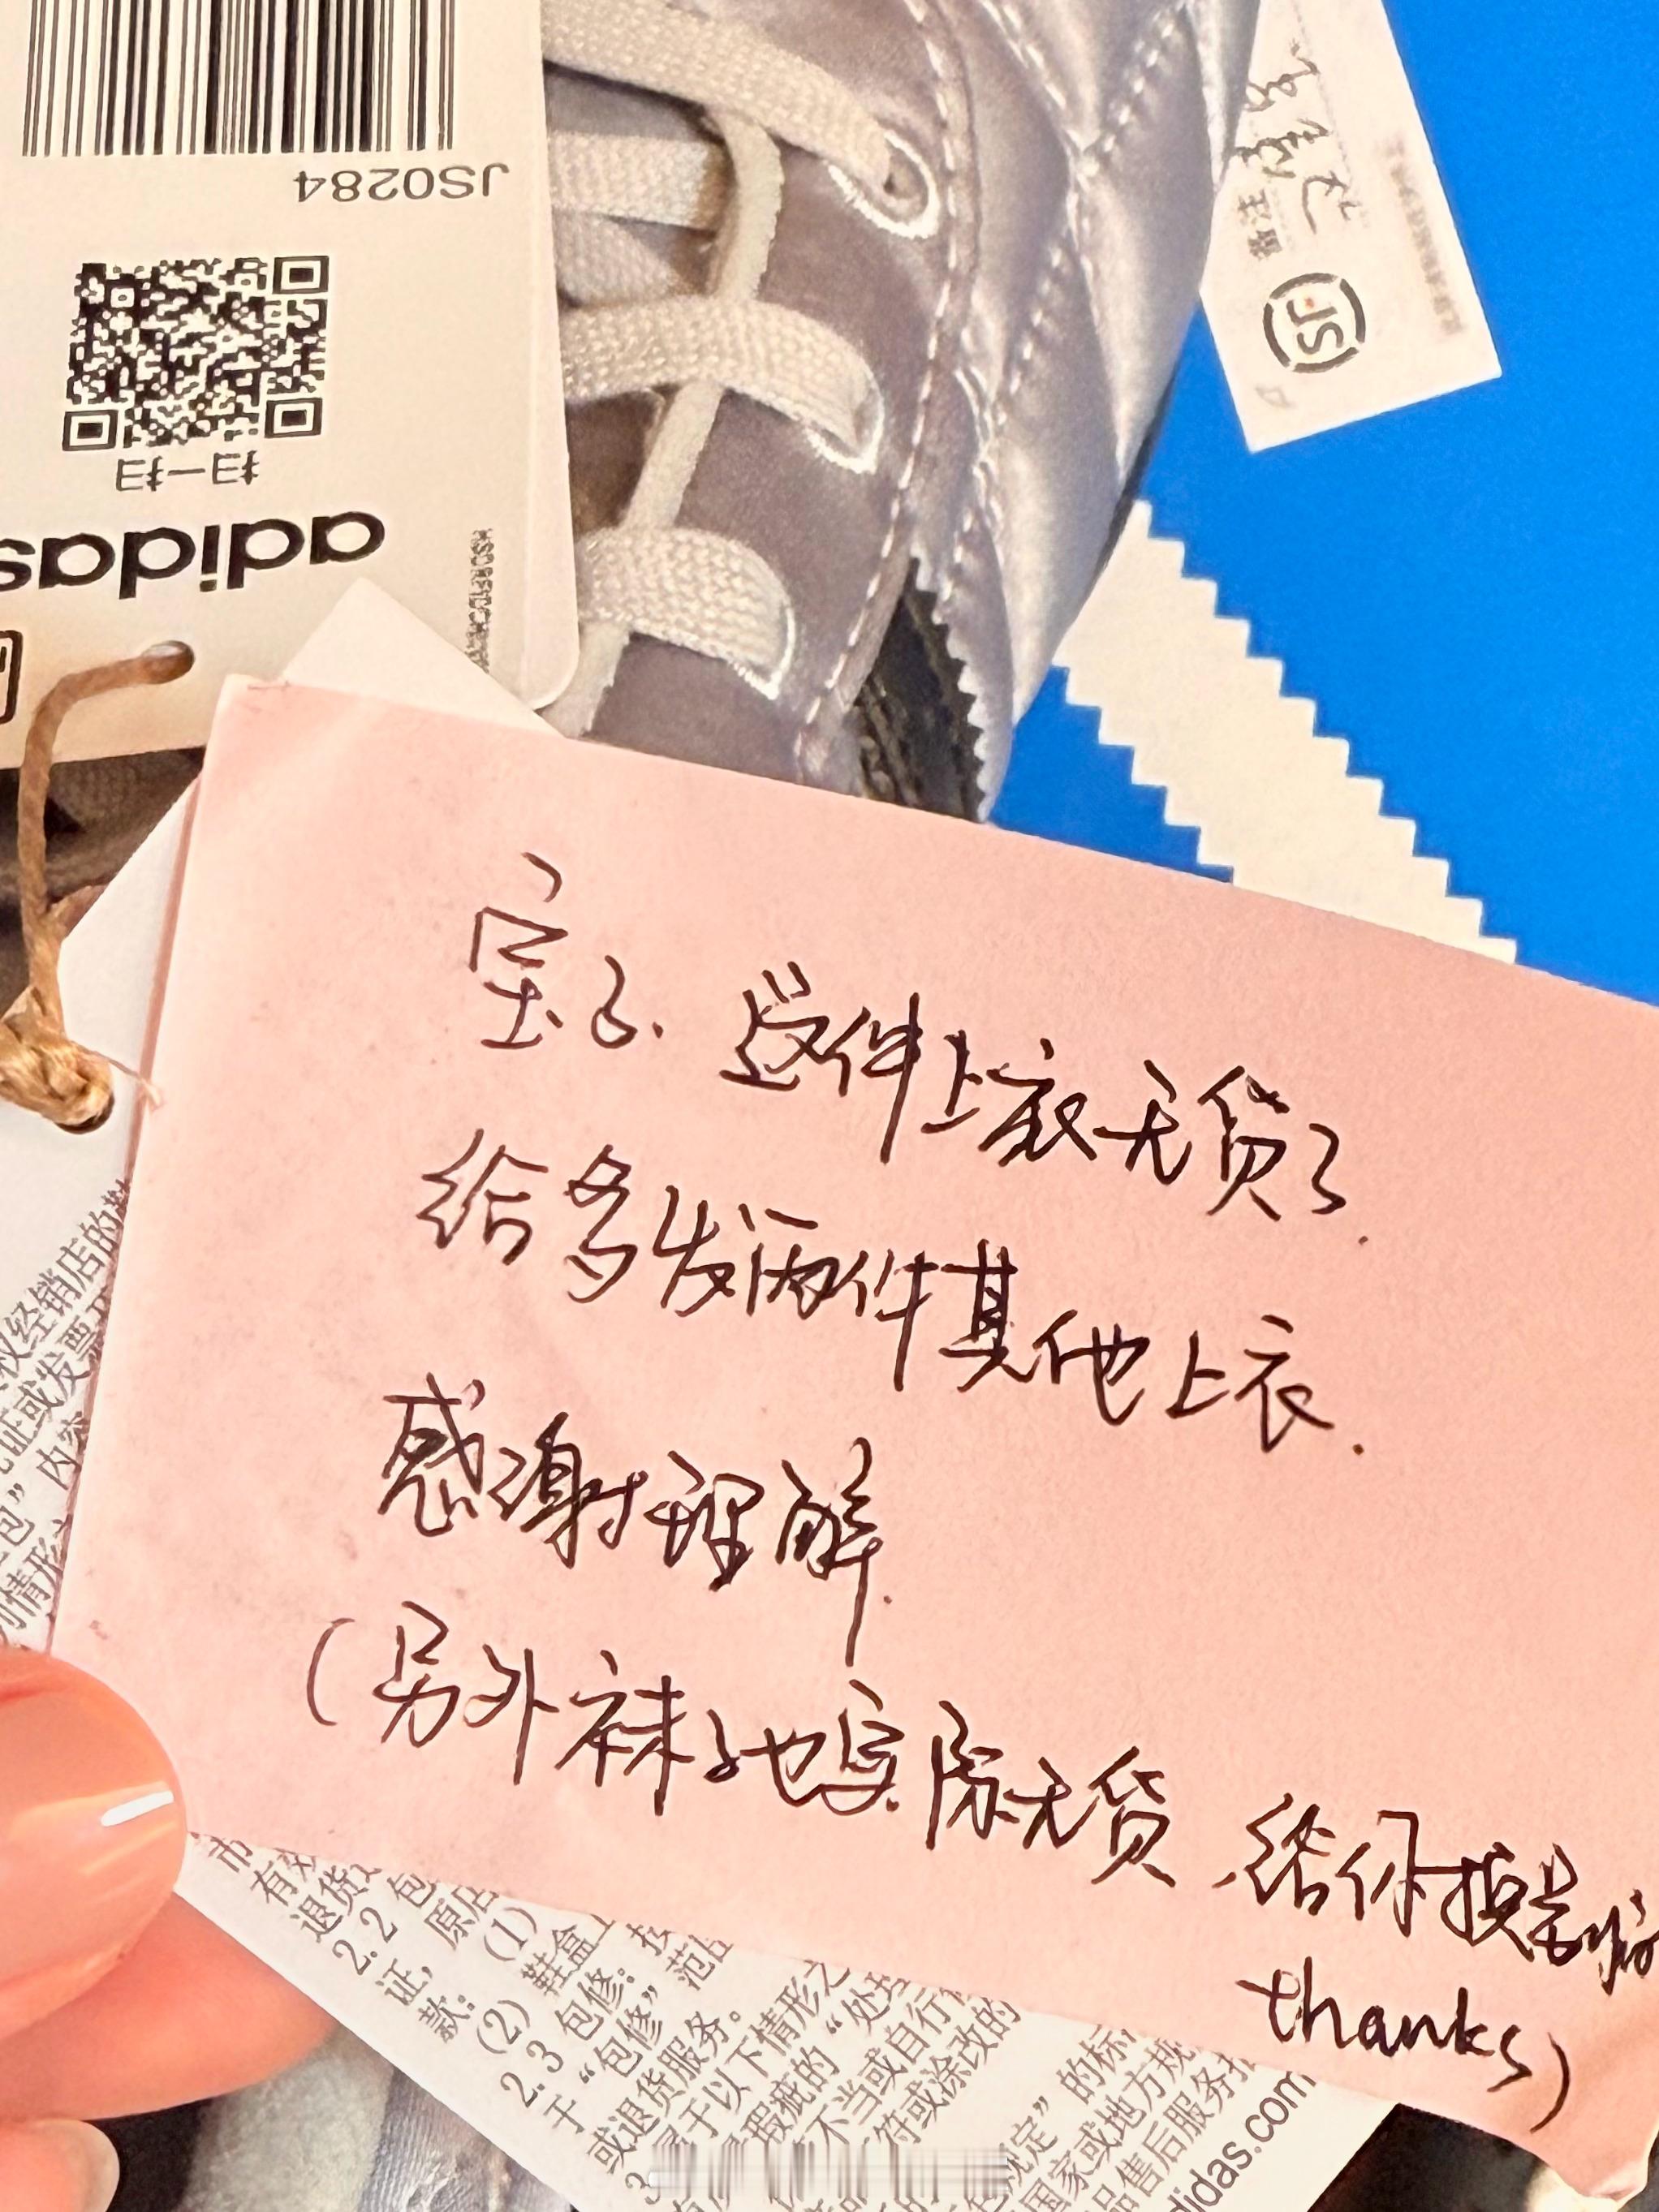 JS0284
扫一扫
adidas
备注
JSF
宝子.这件上衣无货了.
给多发两件其他上衣.
感谢理解.
(另外袜子也实际无货.给你换
thanks)
权经销店的
证或发票
包”内容
情形
市
有效
退货
2.2 包
证,原店
款:(1)
(2)鞋盒上
2.3 包修:按
于“包修”范
或退货服务。
属于以下情形之
瑕疵的“处理
不当或自行
符或涂改的
规定”的标
国家或地方规
品售后服务指
didas.com